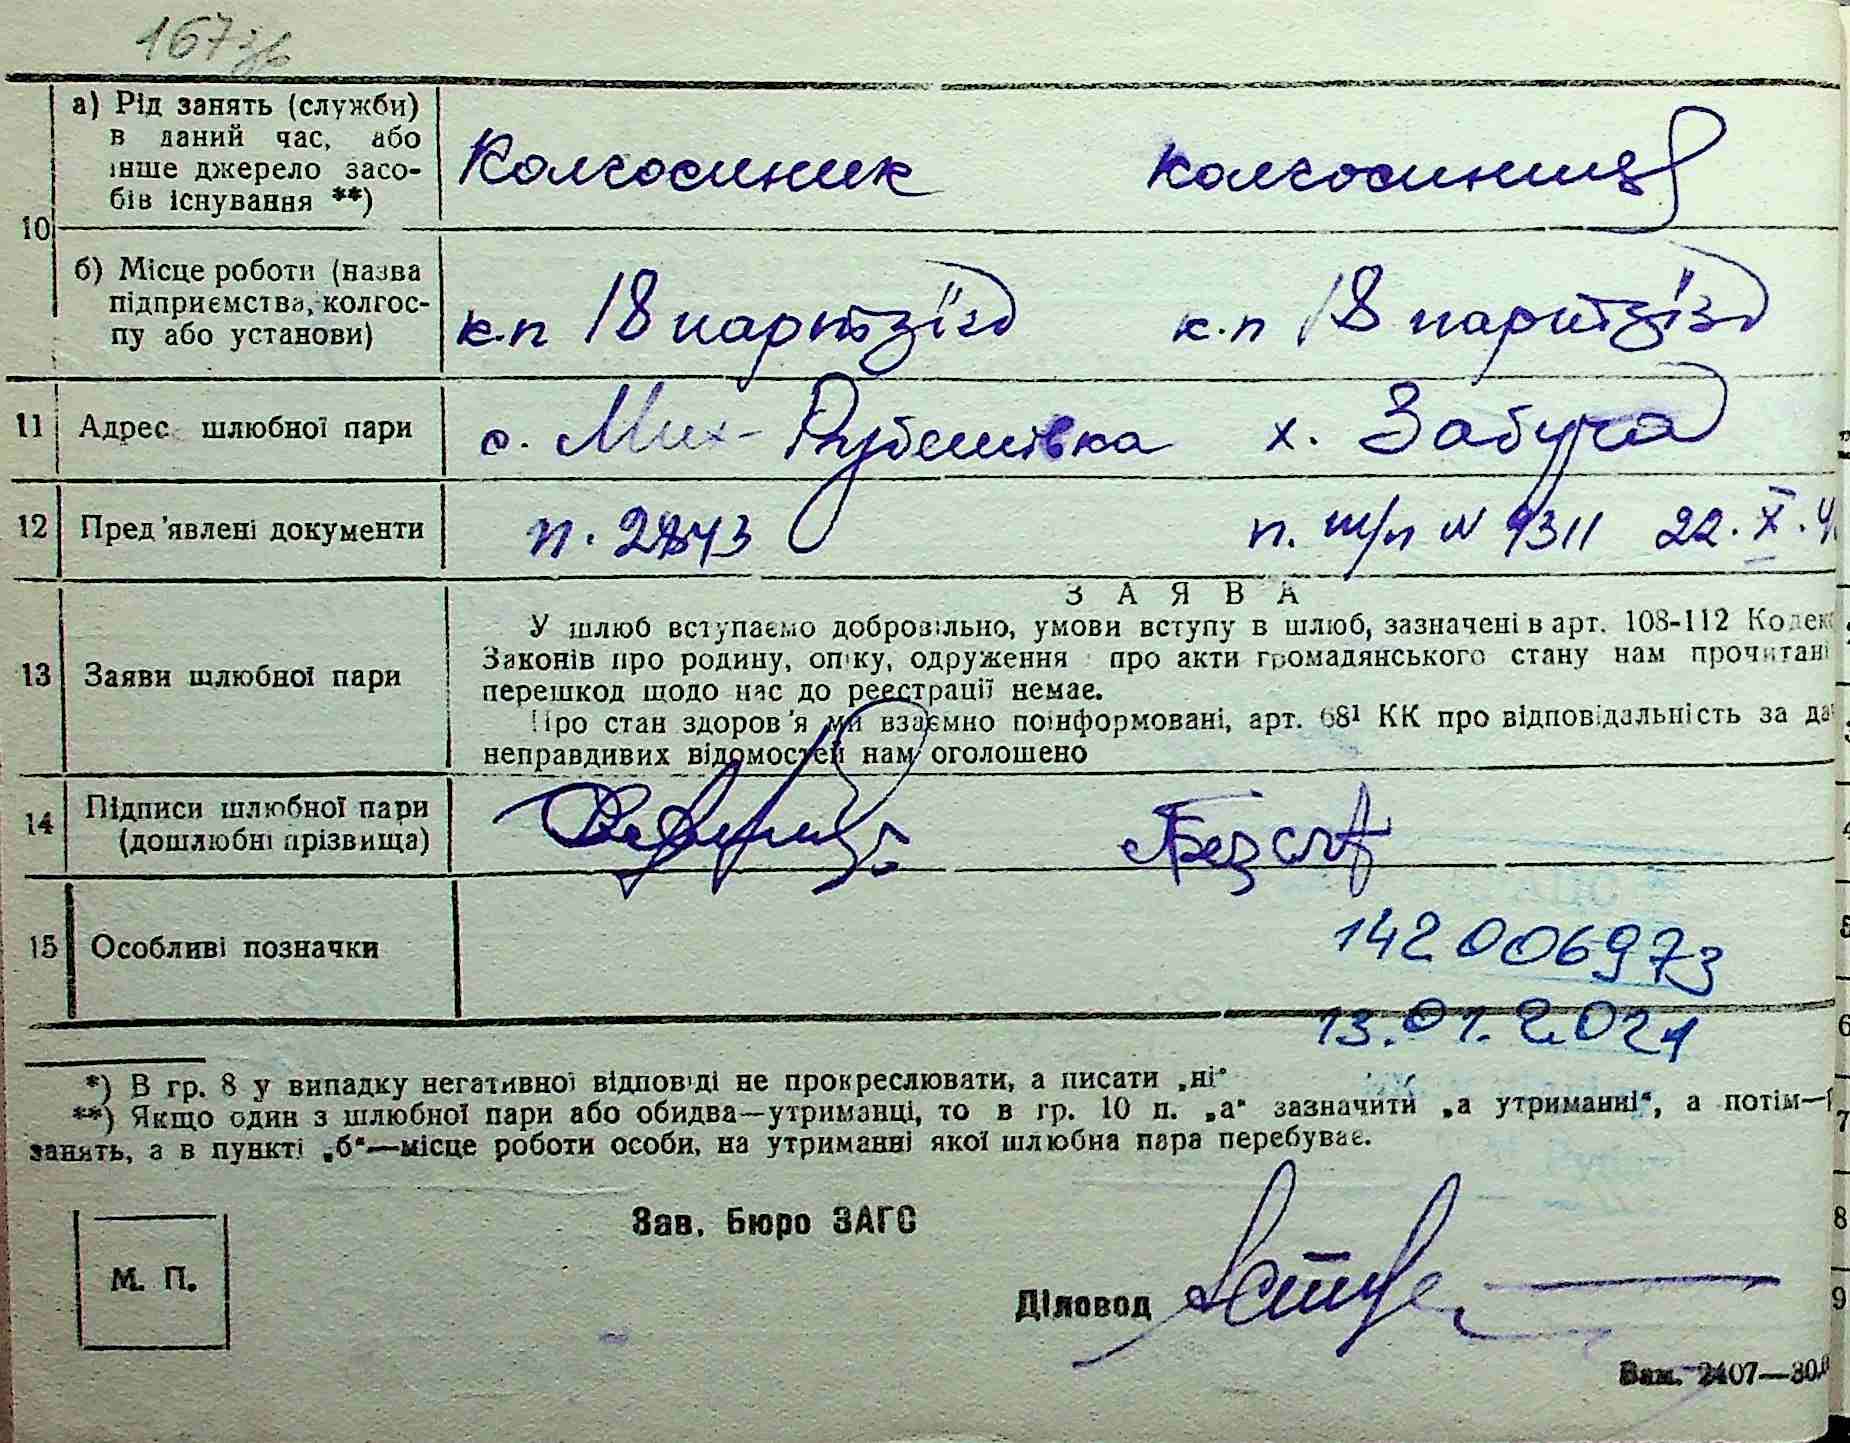 167 зв
а) Рід занять (служби) в даний час, або інше джерело засобів існування **)
Колгоспник колгоспниця
10
б) Місце роботи (назва підприємства, колгоспу або установи)
к.п 18 партз'їзд к.п 18 партз'їзд
11 Адрес шлюбної пари с. Мих-Рубежівка х. Забуча
12 Пред'явлені документи п. 2843 п. ш/п N 9311 22.X.4
ЗАЯВА
13 Заяви шлюбної пари
У шлюб вступаємо добровільно, умови вступу в шлюб, зазначені в арт. 108-112 Кодек
Законів про родину, опіку, одруження про акти громадянського стану нам прочитані
перешкод щодо нас до реєстрації немає.
Про стан здоров'я ми взаємно поінформовані, арт. 68¹ КК про відповідальність за да
неправдивих відомостей нам оголошено
14 Підписи шлюбної пари (дошлюбні прізвища)
15 Особливі позначки
142006973
13.01.2021
*) В гр. 8 у випадку негативної відповіді не прокреслювати, а писати „ні“
**) Якщо один з шлюбної пари або обидва—утриманці, то в гр. 10 п. „а“ зазначити „а утриманні“, а потім—
занять, а в пункті „б“—місце роботи особи, на утриманні якої шлюбна пара перебуває.
Зав. Бюро ЗАГС
М. П.
Діловод
Зам. 2407—30